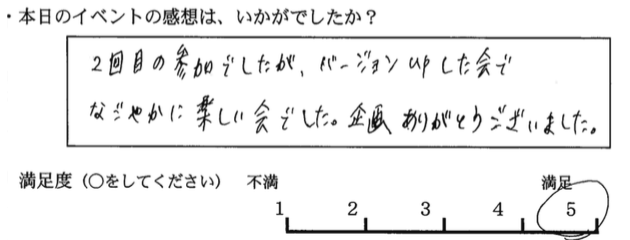 ・本日のイベントの感想は、いかがでしたか？
2回目の参加でしたが、バージョンupした会で
なごやかに楽しい会でした。企画ありがとうございました。
満足度（○をしてください） 不満 満足
1 2 3 4 5